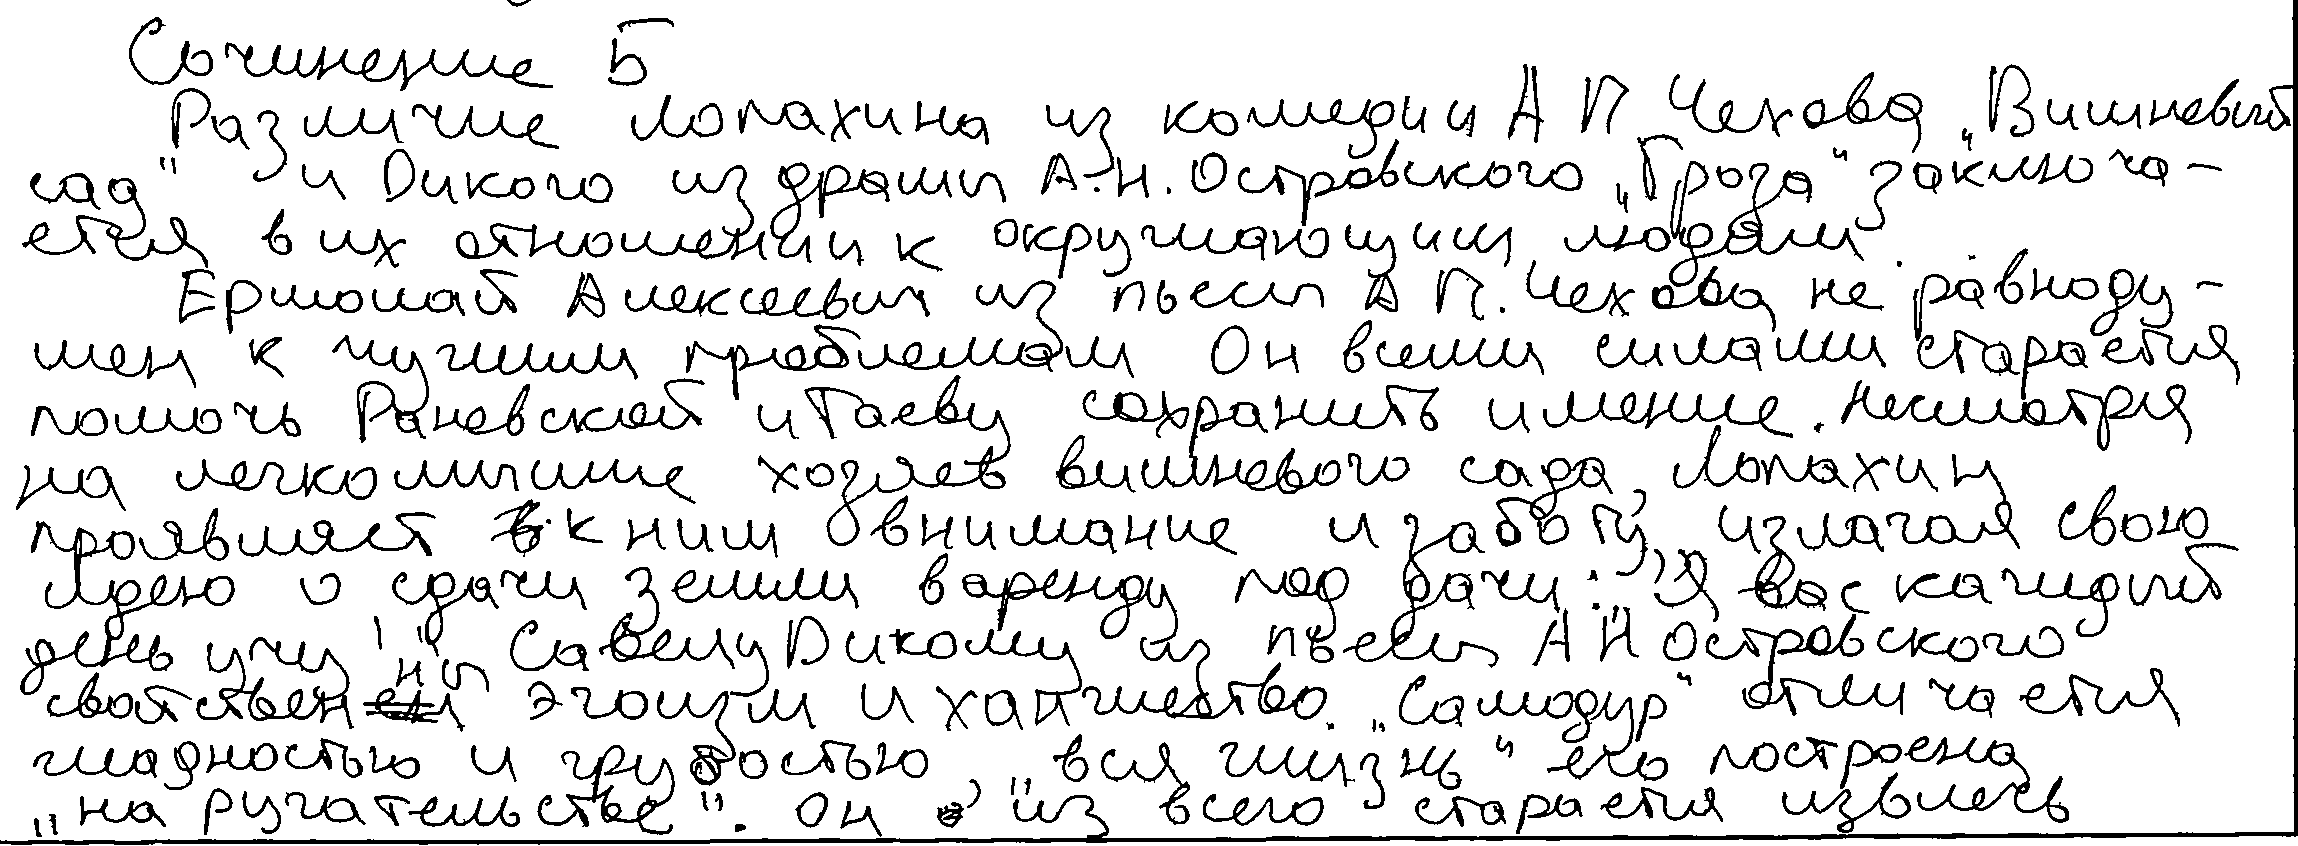 Сочинение Б
Различие Лопахина из комедии А П Чехова „Вишневый
сад" и Дикого из драмы А.Н. Островского „Гроза" заключа-
ется в их отношении к окружающим людям.
Ермолай Алексеевич из пьесы А П. Чехова не равноду-
шен к чужим проблемам Он всеми силами старается
помочь Раневской и Гаеву сохранить имение. Несмотря
на легкомыслие хозяев вишневого сада, Лопахин
проявляет к ним внимание и заботу, излагая свою
идею о сдачи земли в аренду под дачи: „Я вас каждый
день учу!" Савелу Дикому из пьесы А Н Островского
свойственны эгоизм и ханжество. „Самодур" отличается
жадностью и грубостью, „вся жизнь" его построена
„на ругательстве". Он из всего старается извлечь